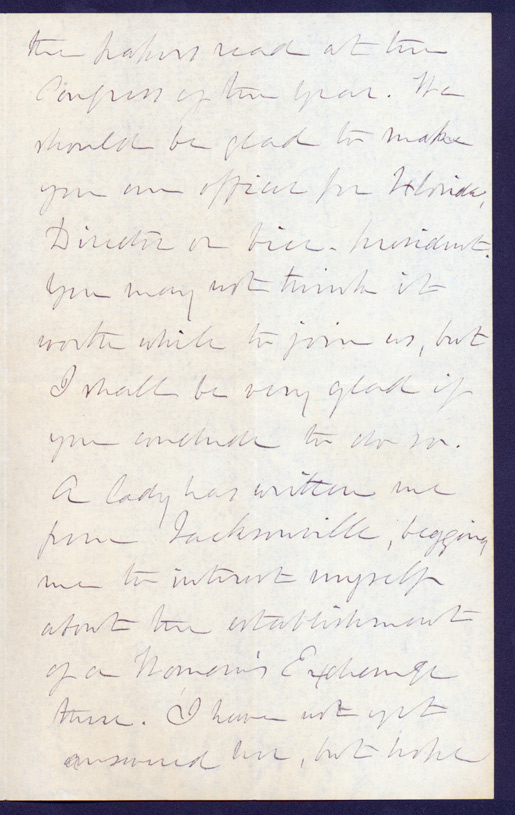 the papers read at the
Congress of the year. We
should be glad to make
you an officer for Florida,
Director or Vice-President.
You may not think it
worth while to join us, but
I shall be very glad if
you conclude to do so.
A lady has written me
from Jacksonville, begging
me to interest myself
about the establishment
of a Woman's Exchange
there. I have not yet
answered her, but hope